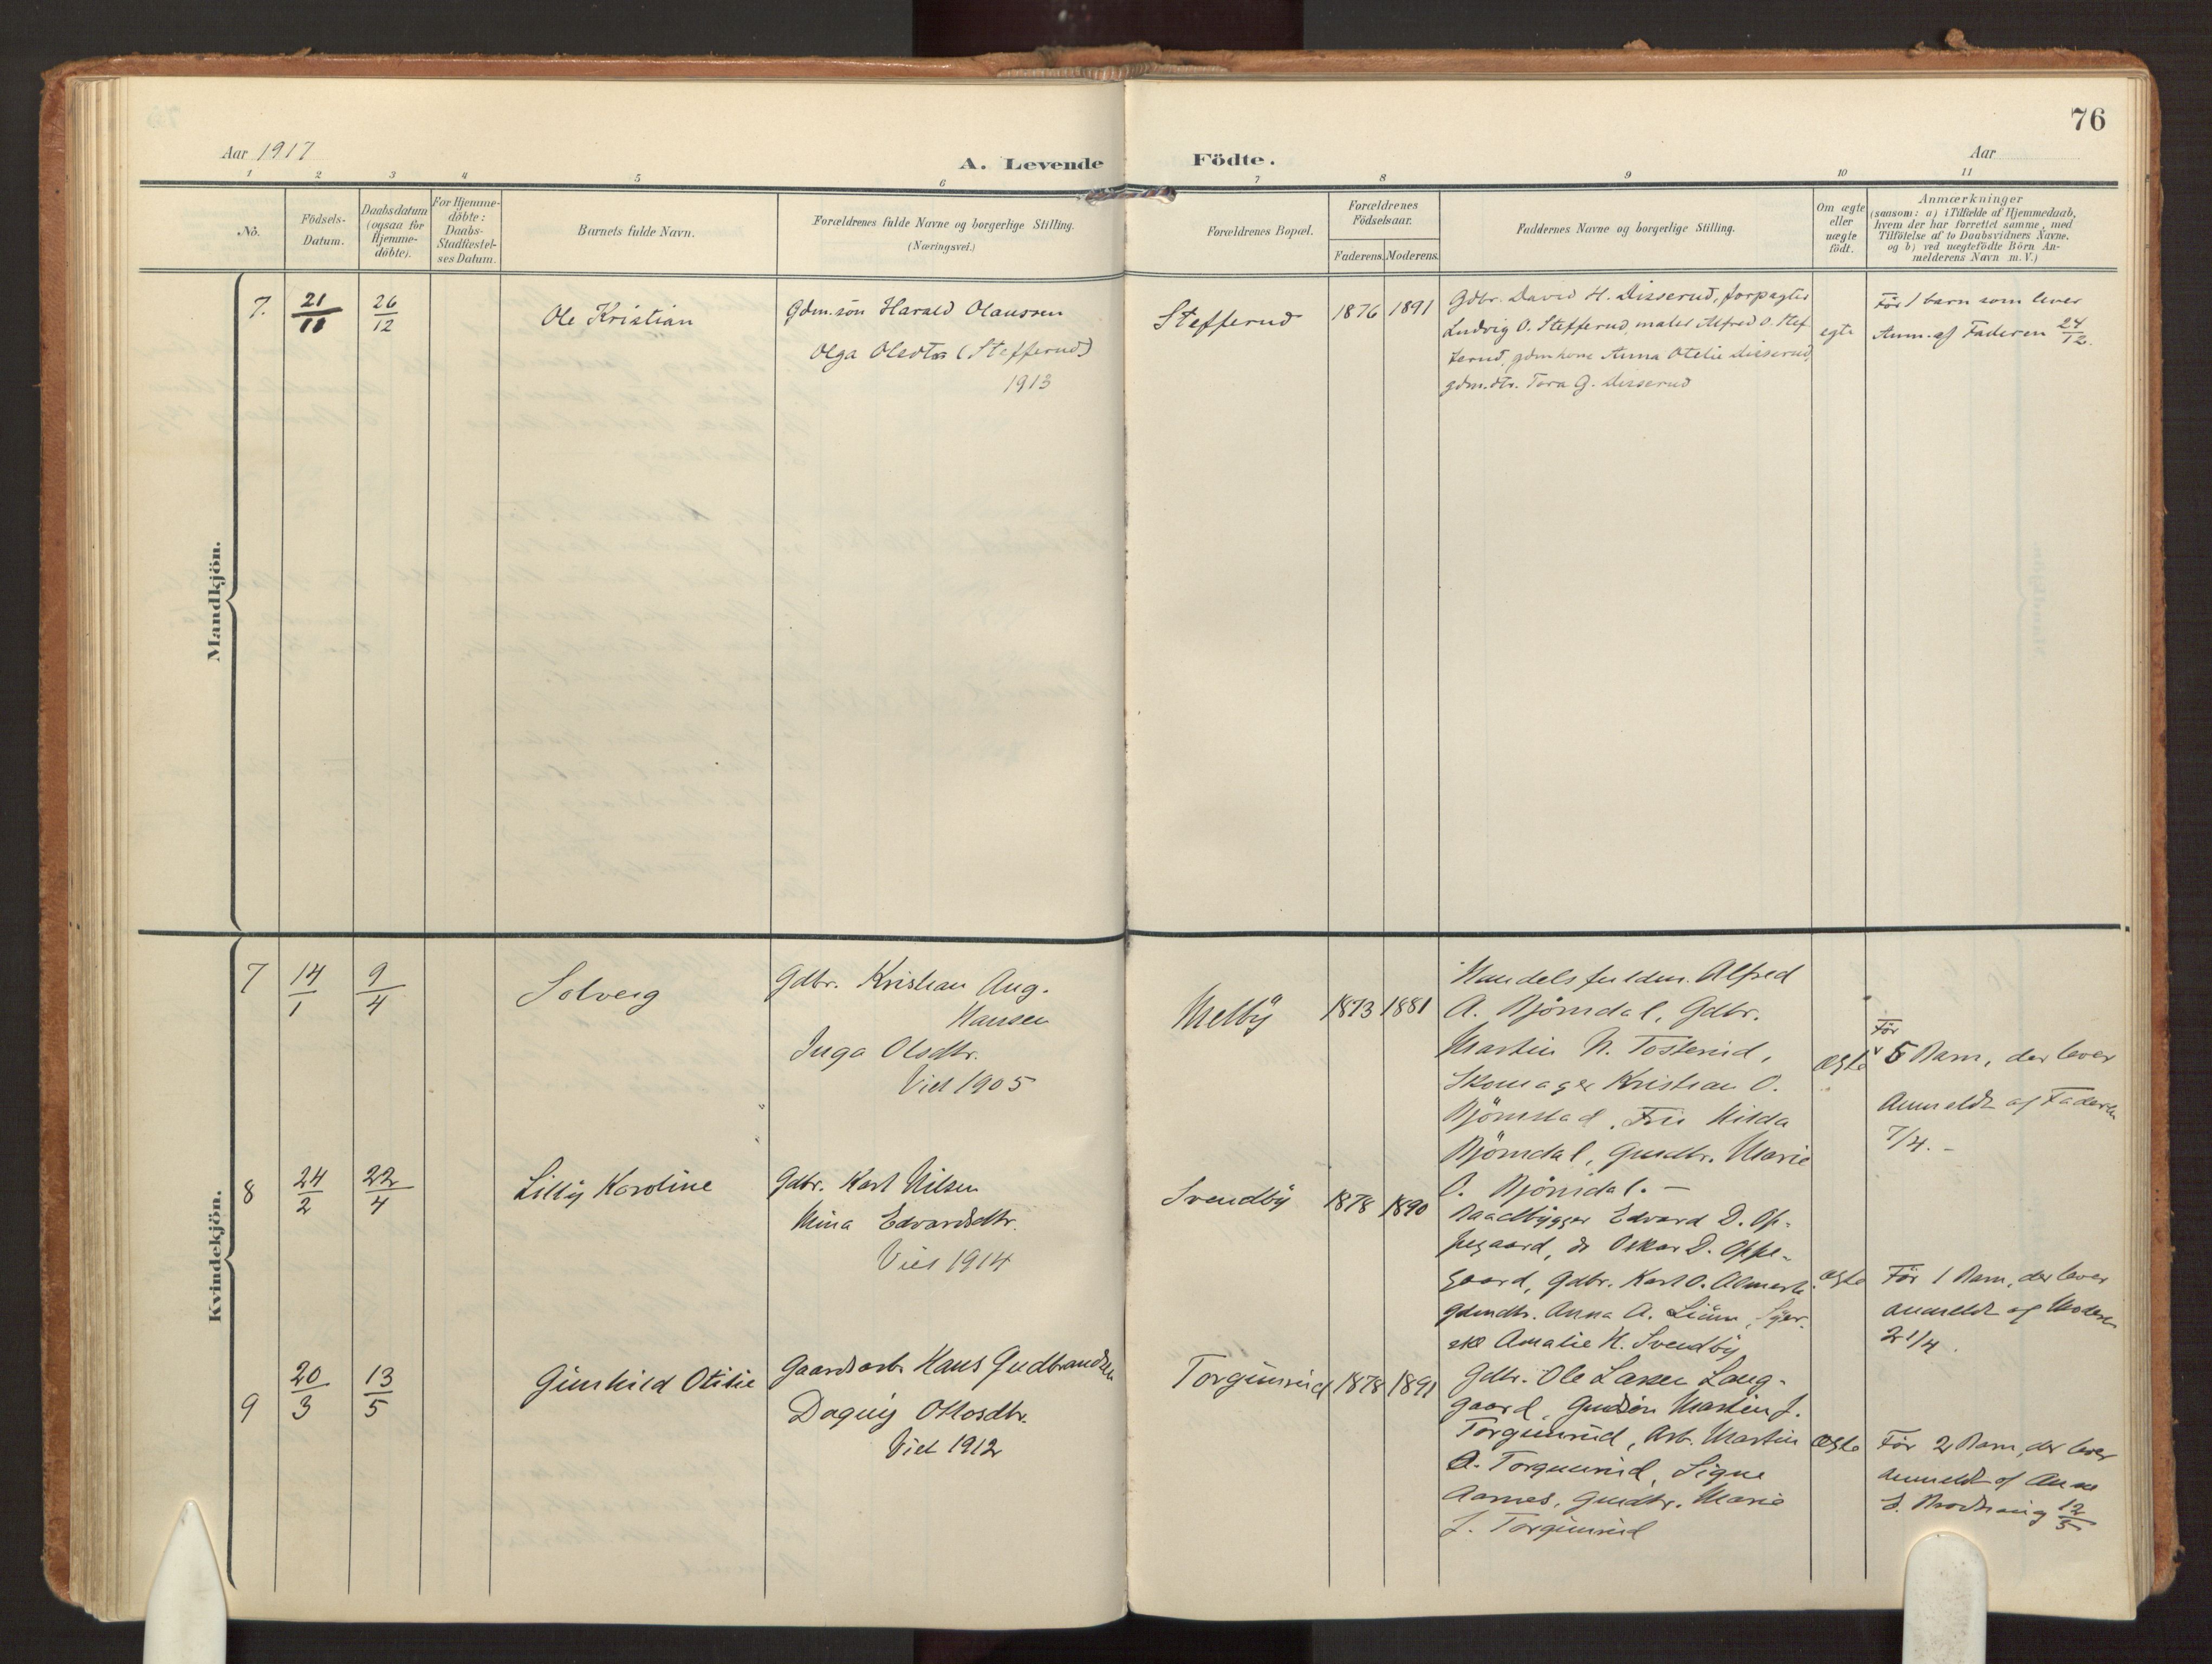 76
Aar 1917
A. Levende Födte.
Aar
1 2 3 4 5 6 7 8 9 10 11
Nô.
Födsels-
Datum.
Daabsdatum
(ogsaa for
Hjemme-
döbte).
For Hjemme-
döbte:
Daabs-
Stadfæstel-
ses Datum.
Barnets fulde Navn.
Forældrenes fulde Navne og borgerlige Stilling.
(Næringsvei.)
Forældrenes Bopæl.
Forældrenes
Födselsaar.
Faderens. Moderens.
Faddernes Navne og borgerlige Stilling.
Om ægte
eller
uægte
födt.
Anmærkninger
(saasom: a) i Tilfælde af Hjemmedaab,
hvem der har forrettet samme, med
Tilföielse af to Daabsvidners Navne,
og b) ved uægtefödte Börn An-
melderens Navn m. V.)
Mandkjön.
7. 21/11 26/12
Ole Kristian
Gdm.søn Harald Olaussen
Olga Olsdtr (Stefferud)
1913
Stefferud
1876 1891
Gdbr. David H. Disserud, forpagter
Ludvig O. Stefferud, maler Alfred O. Stef
ferud, gdmkone Anna Otelie Disserud,
gdm.dtr. Tora G. Disserud
egte
Før 1 barn som lever
Anm. af Faderen 24/12.
Kvindekjön.
7 14/1 9/4
Solveig
Gdbr. Kristian Aug.
Hansen
Inga Olsdtr.
Viet 1905
Melby
1873 1881
Handelsfuldm. Alfred
A. Bjørndal, Gdbr.
Martin N. Tosterud,
Skomager Kristian O.
Bjørnstad, Fru Hilda
Bjørndal, Gmdtr. Marie
O. Bjørndal. –
Ægte
Før
5 Barn, der lever
Anmeldt af Faderen
7/4. –
8 24/2 22/4
Lilly Karoline
Gdbr. Karl Nilsen
Mina Edvardsdtr.
Viet 1914
Svendby
1878 1890
Baadbygger Edvard D. Op-
pegaard, do Oskar D. Oppe-
gaard, Gdbr. Karl O.
Gdmdtr. Anna A.
ske Amalie H. Svendby
Ægte
Før 1 Barn, der lever
anmeldt af Moderen
21/4.
9 20/3 13/5
Gunhild Otilie
Gaardsarb. Hans Gudbrandsen
Dagny Ottosdtr.
Viet 1912
Torgunrud
1878 1891
Gdbr. Ole Larsen Lang-
gaard, Gmdsøn Martin J.
Torgunrud, Arb. Martin
A. Torgunrud, Signe
Aarnes, Gmdtr. Marie
J. Torgunrud
Ægte
Før 2 Barn, der lever
anmeldt af Anne
12/5